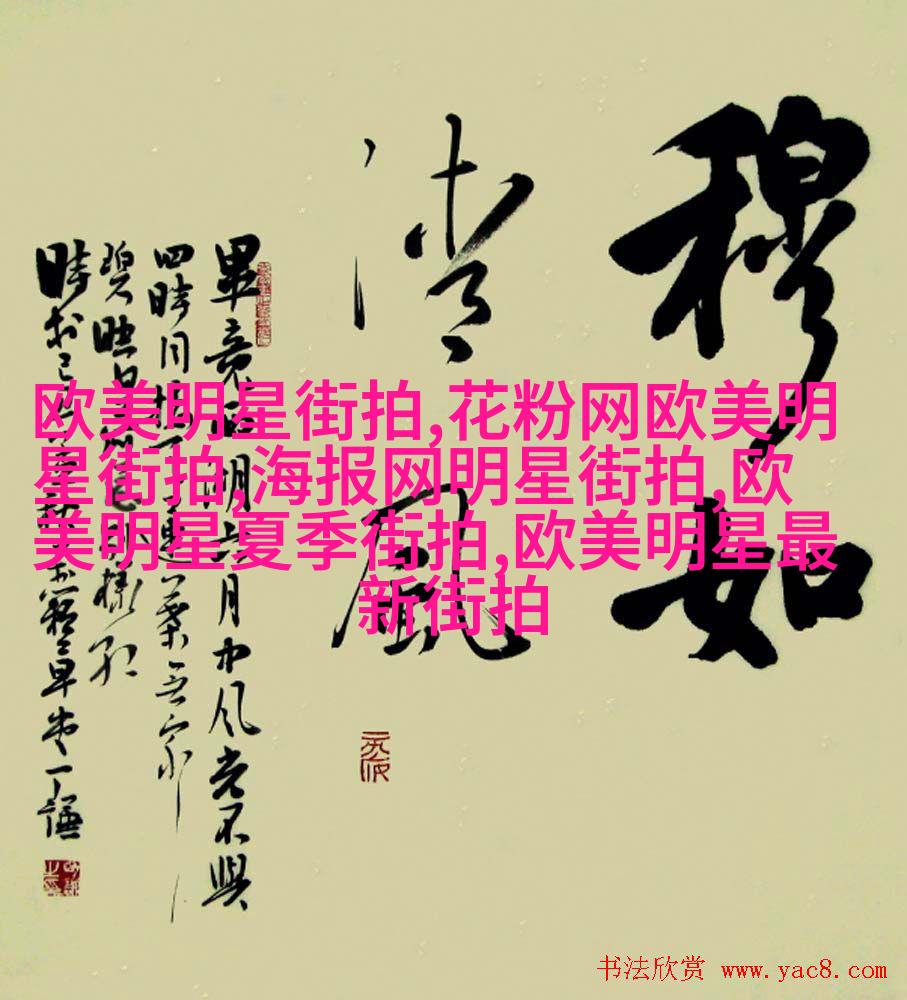 穆如
清風
畢竟西湖六月中风光不與
四時同接天蓮葉无穷
碧映日荷花别樣红
時於己
欧美明星街拍,花粉网欧美明
星街拍,海报网明星街拍,欧
美明星夏季街拍,欧美明星最
新街拍
书法欣赏 www.yac8.com